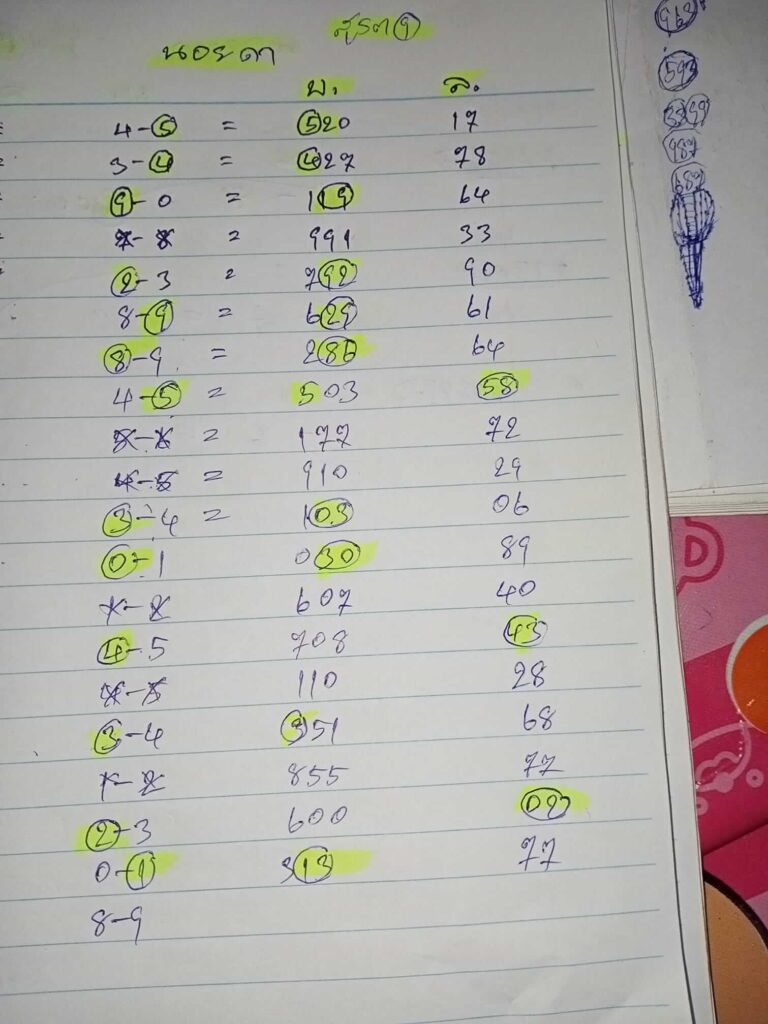 สูตร ①
นอยดา
บ. ล.
4-5 = 520 17
3-4 = 427 78
9-0 = 119 64
= 991 33
2-3 = 792 90
8-9 = 629 61
8-9 = 286 64
4-5 = 503 58
= 177 72
4-5 = 910 29
3-4 = 103 06
0-1 030 89
607 40
4-5 708 43
110 28
3-4 351 68
1-2 855 77
2-3 600 02
0-1 313 77
8-9
963
593
987
687
D